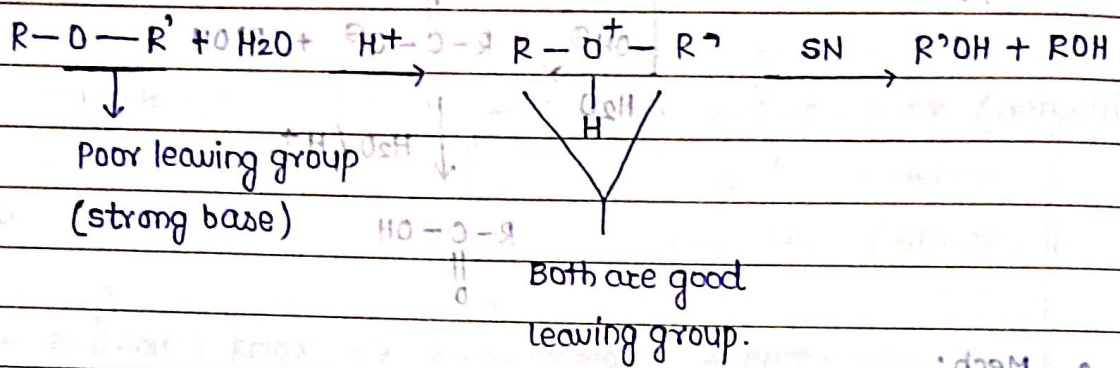 R–O–R' + H2O H+ → R–O+–R' SN → R'OH + ROH
H
Poor leaving group
(strong base)
Both are good
leaving group.